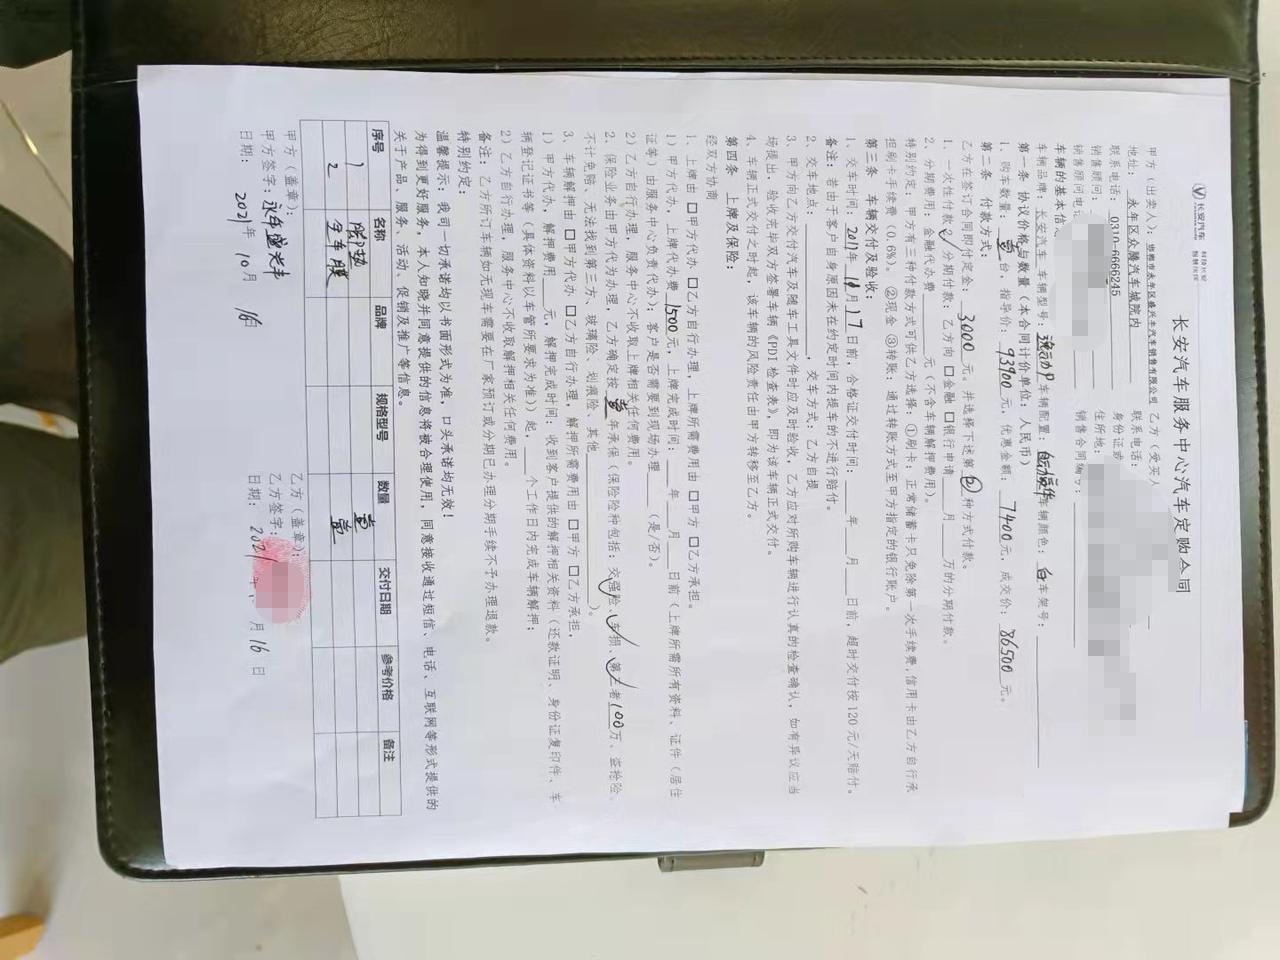 长安汽车
长安汽车服务中心汽车定购合同
甲方（出卖人）：邯郸市永年区盛兴丰汽车销售有限公司 乙方（受买人
地址：永年区众腾汽车城院内 联系电话：
联系电话：0310-6666245 身份证
销售顾问： 住所地：
销售顾问电 销售合同编号：
车辆的基本信
车辆品牌：长安汽车 车辆型号：逸动P 车辆配置： 车辆颜色：白 车架号：
第一条 协议价格与数量（本合同计价单位：人民币）
1、购车数量：壹台，指导价：93900元，优惠金额：7400元，成交价：86500元。
第二条 付款方式：
乙方在签订合同即付定金：3000元。并选择下述第②种方式付款。
1、一次性付款 2、分期付款：乙方向 □金融 □银行申请____月____万的分期付款。
2、分期费用：金融代办费____元（不含车辆解押费用）。
特别约定：甲方有三种付款方式可供乙方选择：①刷卡：正常储蓄卡只免除第一次手续费，信用卡由乙方自行承
担刷卡手续费（0.6%）。②现金 ③转账：通过转账方式至甲方指定的银行账户。
第三条 车辆交付及验收：
1、交车时间：年 月17日前，合格证交付时间：____年____月____日前，超时交付按120元/天赔付。
备注：若由于客户自身原因未在约定时间内提车的不进行赔付。
2、交车地点：________，交车方式：乙方自提
3、甲方向乙方交付汽车及随车工具文件时应及时验收，乙方应对所购车辆进行认真的检查确认，如有异议应当
场提出，验收完毕双方签署车辆《PDI检查表》，即为该车辆正式交付。
4、车辆正式交付之时起，该车辆的风险责任由甲方转移至乙方。
第四条 上牌及保险：
经双方协商
1、上牌由 □甲方代办 □乙方自行办理，上牌所需费用由 □甲方 □乙方承担。
1）甲方代办，上牌代办费1500元，上牌完成时间：____年____月____日前（上牌所需所有资料、证件（居住
证等）由服务中心负责代办；客户是否需要到现场办理____（是/否）。
2）乙方自行办理，服务中心不收取上牌相关任何费用。
2、保险业务由甲方代为办理，乙方确定按壹年承保（保险险种包括：交强险、车损、第三者100万、盗抢险、
不计免赔、无法找到第三方、玻璃险、划痕险、其他________）。
3、车辆解押由 □甲方代办 □乙方自行办理，解押所需费用由 □甲方 □乙方承担，
1）甲方代办，解押费用____元，解押完成时间：收到客户提供的解押相关资料（还款证明、身份证复印件、车
辆登记证书等（具体资料以车管所要求为准））起，____个工作日内完成车辆解押；
2）乙方自行办理，服务中心不收取解押相关任何费用。
备注：乙方所订车辆如无现车需要在厂家预订或分期已办理分期手续不予办理退款。
特别约定：
温馨提示：我司一切承诺均以书面形式为准，口头承诺均无效！
为得到更好服务，本人知晓并同意提供的信息将被合理使用，同意接收通过短信、电话、互联网等形式提供的
关于产品、服务、活动、促销及推广等信息。
序号 名称 品牌 规格型号 数量 交付日期 参考价格 备注
1 脚垫 壹
2 全车膜 壹
甲方（盖章）： 乙方（盖章）：
甲方签字：永年盛兴丰 乙方签字：
日期：2021年10月16 日期：2021年 月16日